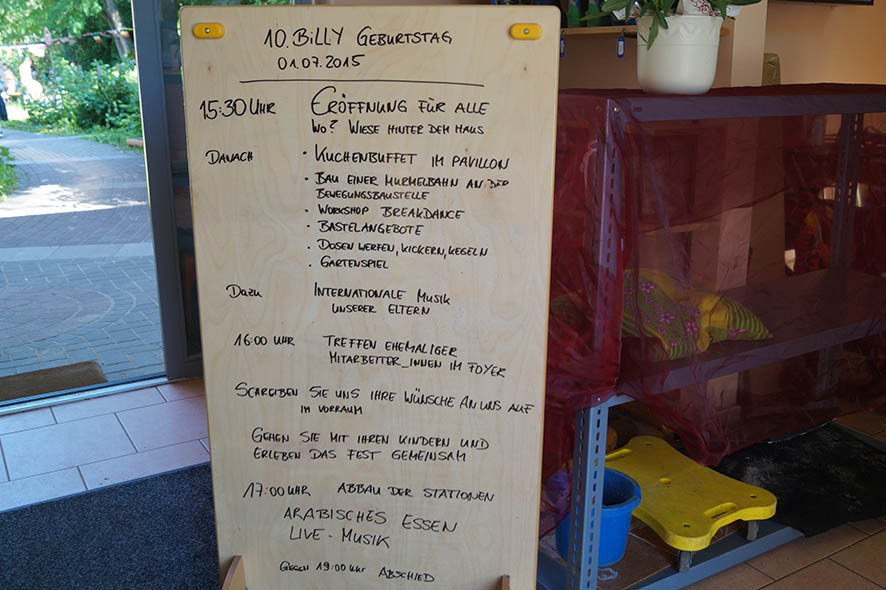 10. BILLY GEBURTSTAG
01.07.2015
15:30 UHR ERÖFFNUNG FÜR ALLE
WO? WIESE HINTER DEM HAUS
DANACH · KUCHENBUFFET IM PAVILLON
· BAU EINER MURMELBAHN AN DER
BEWEGUNGSBAUSTELLE
· WORKSHOP BREAKDANCE
· BASTELANGEBOTE
· DOSEN WERFEN, KICKERN, KEGELN
· GARTENSPIEL
DAZU INTERNATIONALE MUSIK
UNSERER ELTERN
16:00 UHR TREFFEN EHEMALIGER
MITARBEITER_INNEN IM FOYER
SCHREIBEN SIE UNS IHRE WÜNSCHE AN UNS AUF
IM VORRAUM
GEHEN SIE MIT IHREN KINDERN UND
ERLEBEN DAS FEST GEMEINSAM
17:00 UHR ABBAU DER STATIONEN
ARABISCHES ESSEN
LIVE-MUSIK
GEGEN 19:00 UHR ABSCHIED